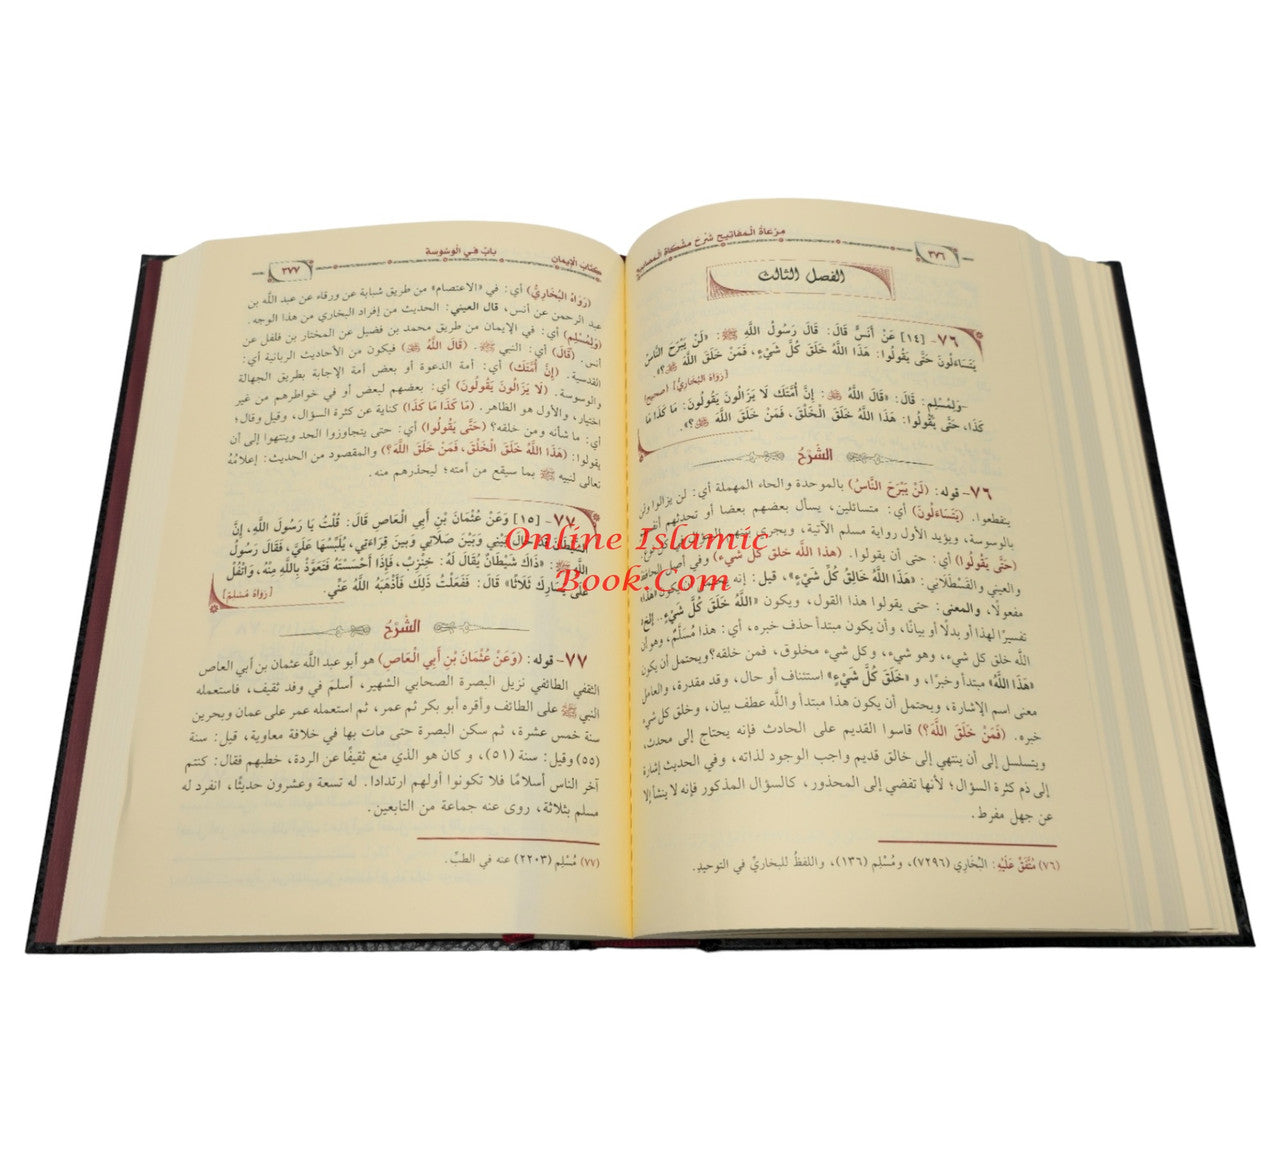 ٣٧٦
مرعاة المفاتيح شرح مشكاة المصابيح
الفصل الثالث
٧٦- [١٤] عَنْ أَنَسٍ قَالَ: قَالَ رَسُولُ اللَّهِ ﷺ: «لَنْ يَبْرَحَ النَّاسُ
يَتَسَاءَلُونَ حَتَّى يَقُولُوا: هَذَا اللَّهُ خَلَقَ كُلَّ شَيْءٍ، فَمَنْ خَلَقَ اللَّهَ ﷻ؟».
[رَوَاهُ البُخَارِيُّ] [صحيح]
-وَلِمُسْلِمٍ: قَالَ: «قَالَ اللَّهُ ﷻ: إِنَّ أُمَّتَكَ لَا يَزَالُونَ يَقُولُونَ: مَا كَذَا مَا
كَذَا، حَتَّى يَقُولُوا: هَذَا اللَّهُ خَلَقَ الْخَلْقَ، فَمَنْ خَلَقَ اللَّهَ ﷻ؟».
الشَّرْحُ
٧٦- قوله: (لَنْ يَبْرَحَ النَّاسُ) بالموحدة والحاء المهملة أي: لن يزالوا ولن
ينقطعوا. (يَتَسَاءَلُونَ) أي: متسائلين، يسأل بعضهم بعضا أو تحدثهم أنفسهم
بالوسوسة، ويؤيد الأول رواية مسلم الآتية، ويجري بينهم السؤال في كل نوع
(حَتَّى يَقُولُوا) أي: حتى أن يقولوا. (هذا اللَّه خلق كل شيء) وفي أصل الحافظ
والعيني والقسْطَلَّاني: «هَذَا اللَّهُ خَالِقُ كُلِّ شَيْءٍ»، قيل: إنه يحتمل أن يكون «هذا»
مفعولًا، والمعنى: حتى يقولوا هذا القول، ويكون «اللَّهُ خَلَقَ كُلَّ شَيْءٍ.. إلخ»
تفسيرًا لهذا أو بدلًا أو بيانًا، وأن يكون مبتدأ حذف خبره، أي: هذا مُسَلَّمٌ، وهو أن
اللَّه خلق كل شيء، وهو شيء، وكل شيء مخلوق، فمن خلقه؟ ويحتمل أن يكون
«هَذَا اللَّهُ» مبتدأ وخبرًا، و «خَلَقَ كُلَّ شَيْءٍ» استئناف أو حال، وقد مقدرة، والعامل
معنى اسم الإشارة، ويحتمل أن يكون هذا مبتدأ واللَّه عطف بيان، وخلق كل شيء
خبره. (فَمَنْ خَلَقَ اللَّهَ؟) قاسوا القديم على الحادث فإنه يحتاج إلى محدث،
ويتسلسل إلى أن ينتهي إلى خالق قديم واجب الوجود لذاته، وفي الحديث إشارة
إلى ذم كثرة السؤال؛ لأنها تفضي إلى المحذور، كالسؤال المذكور فإنه لا ينشأ إلا
عن جهل مفرط.
(٧٦) مُتَّفَقٌ عَلَيْهِ: البُخَارِي (٧٢٩٦)، ومُسْلِم (١٣٦)، واللفظُ للبخاريِّ في التوحيدِ.
كتاب الإيمان
باب في الوسوسة
٣٧٧
(رَوَاهُ البُخَارِيُّ) أي: في «الاعتصام» من طريق شبابة عن ورقاء عن عبد اللَّه بن
عبد الرحمن عن أنس، قال العيني: الحديث من إفراد البخاري من هذا الوجه.
(وَلِمُسْلِمٍ) أي: في الإيمان من طريق محمد بن فضيل عن المختار بن فلفل عن
أنس. (قَالَ) أي: النبي ﷺ. (قَالَ اللَّهُ ﷻ) فيكون من الأحاديث الربانية أي:
القدسية. (إِنَّ أُمَّتَكَ) أي: أمة الدعوة أو بعض أمة الإجابة بطريق الجهالة
والوسوسة. (لَا يَزَالُونَ يَقُولُونَ) أي: بعضهم لبعض أو في خواطرهم من غير
اختيار، والأول هو الظاهر. (مَا كَذَا مَا كَذَا) كناية عن كثرة السؤال، وقيل وقال؛
أي: ما شأنه ومن خلقه؟ (حَتَّى يَقُولُوا) أي: حتى يتجاوزوا الحد وينتهوا إلى أن
يقولوا: (هَذَا اللَّهُ خَلَقَ الْخَلْقَ، فَمَنْ خَلَقَ اللَّهَ؟) والمقصود من الحديث: إعلامُهُ
تعالى لنبيه ﷺ بما سيقع من أمته؛ ليحذرهم منه.
٧٧- [١٥] وَعَنْ عُثْمَانَ بْنِ أَبِي الْعَاصِ قَالَ: قُلْتُ يَا رَسُولَ اللَّهِ، إِنَّ
الشَّيْطَانَ قَدْ حَالَ بَيْنِي وَبَيْنَ صَلَاتِي وَبَيْنَ قِرَاءَتِي، يُلَبِّسُهَا عَلَيَّ، فَقَالَ رَسُولُ
اللَّهِ ﷺ: «ذَاكَ شَيْطَانٌ يُقَالُ لَهُ: خِنْزِبٌ، فَإِذَا أَحْسَسْتَهُ فَتَعَوَّذْ بِاللَّهِ مِنْهُ، وَاتْفُلْ
عَلَى يَسَارِكَ ثَلَاثًا» قَالَ: فَفَعَلْتُ ذَلِكَ فَأَذْهَبَهُ اللَّهُ عَنِّي.
[رَوَاهُ مُسْلِمٌ]
الشَّرْحُ
٧٧- قوله: (وَعَنْ عُثْمَانَ بْنِ أَبِي الْعَاصِ) هو أبو عبد اللَّه عثمان بن أبي العاص
الثقفي الطائفي نزيل البصرة الصحابي الشهير، أسلمَ في وفد ثقيف، فاستعمله
النبي ﷺ على الطائف وأقره أبو بكر ثم عمر، ثم استعمله عمر على عمان وبحرين
سنة خمس عشرة، ثم سكن البصرة حتى مات بها في خلافة معاوية، قيل: سنة
(٥٥) وقيل: سنة (٥١)، و كان هو الذي منع ثقيفًا عن الردة، خطبهم فقال: كنتم
آخر الناس أسلامًا فلا تكونوا أولهم ارتدادا. له تسعة وعشرون حديثًا، انفرد له
مسلم بثلاثة، روى عنه جماعة من التابعين.
(٧٧) مُسْلِم (٢٢٠٣) عنه في الطبِّ.
Online Islamic
Book.Com